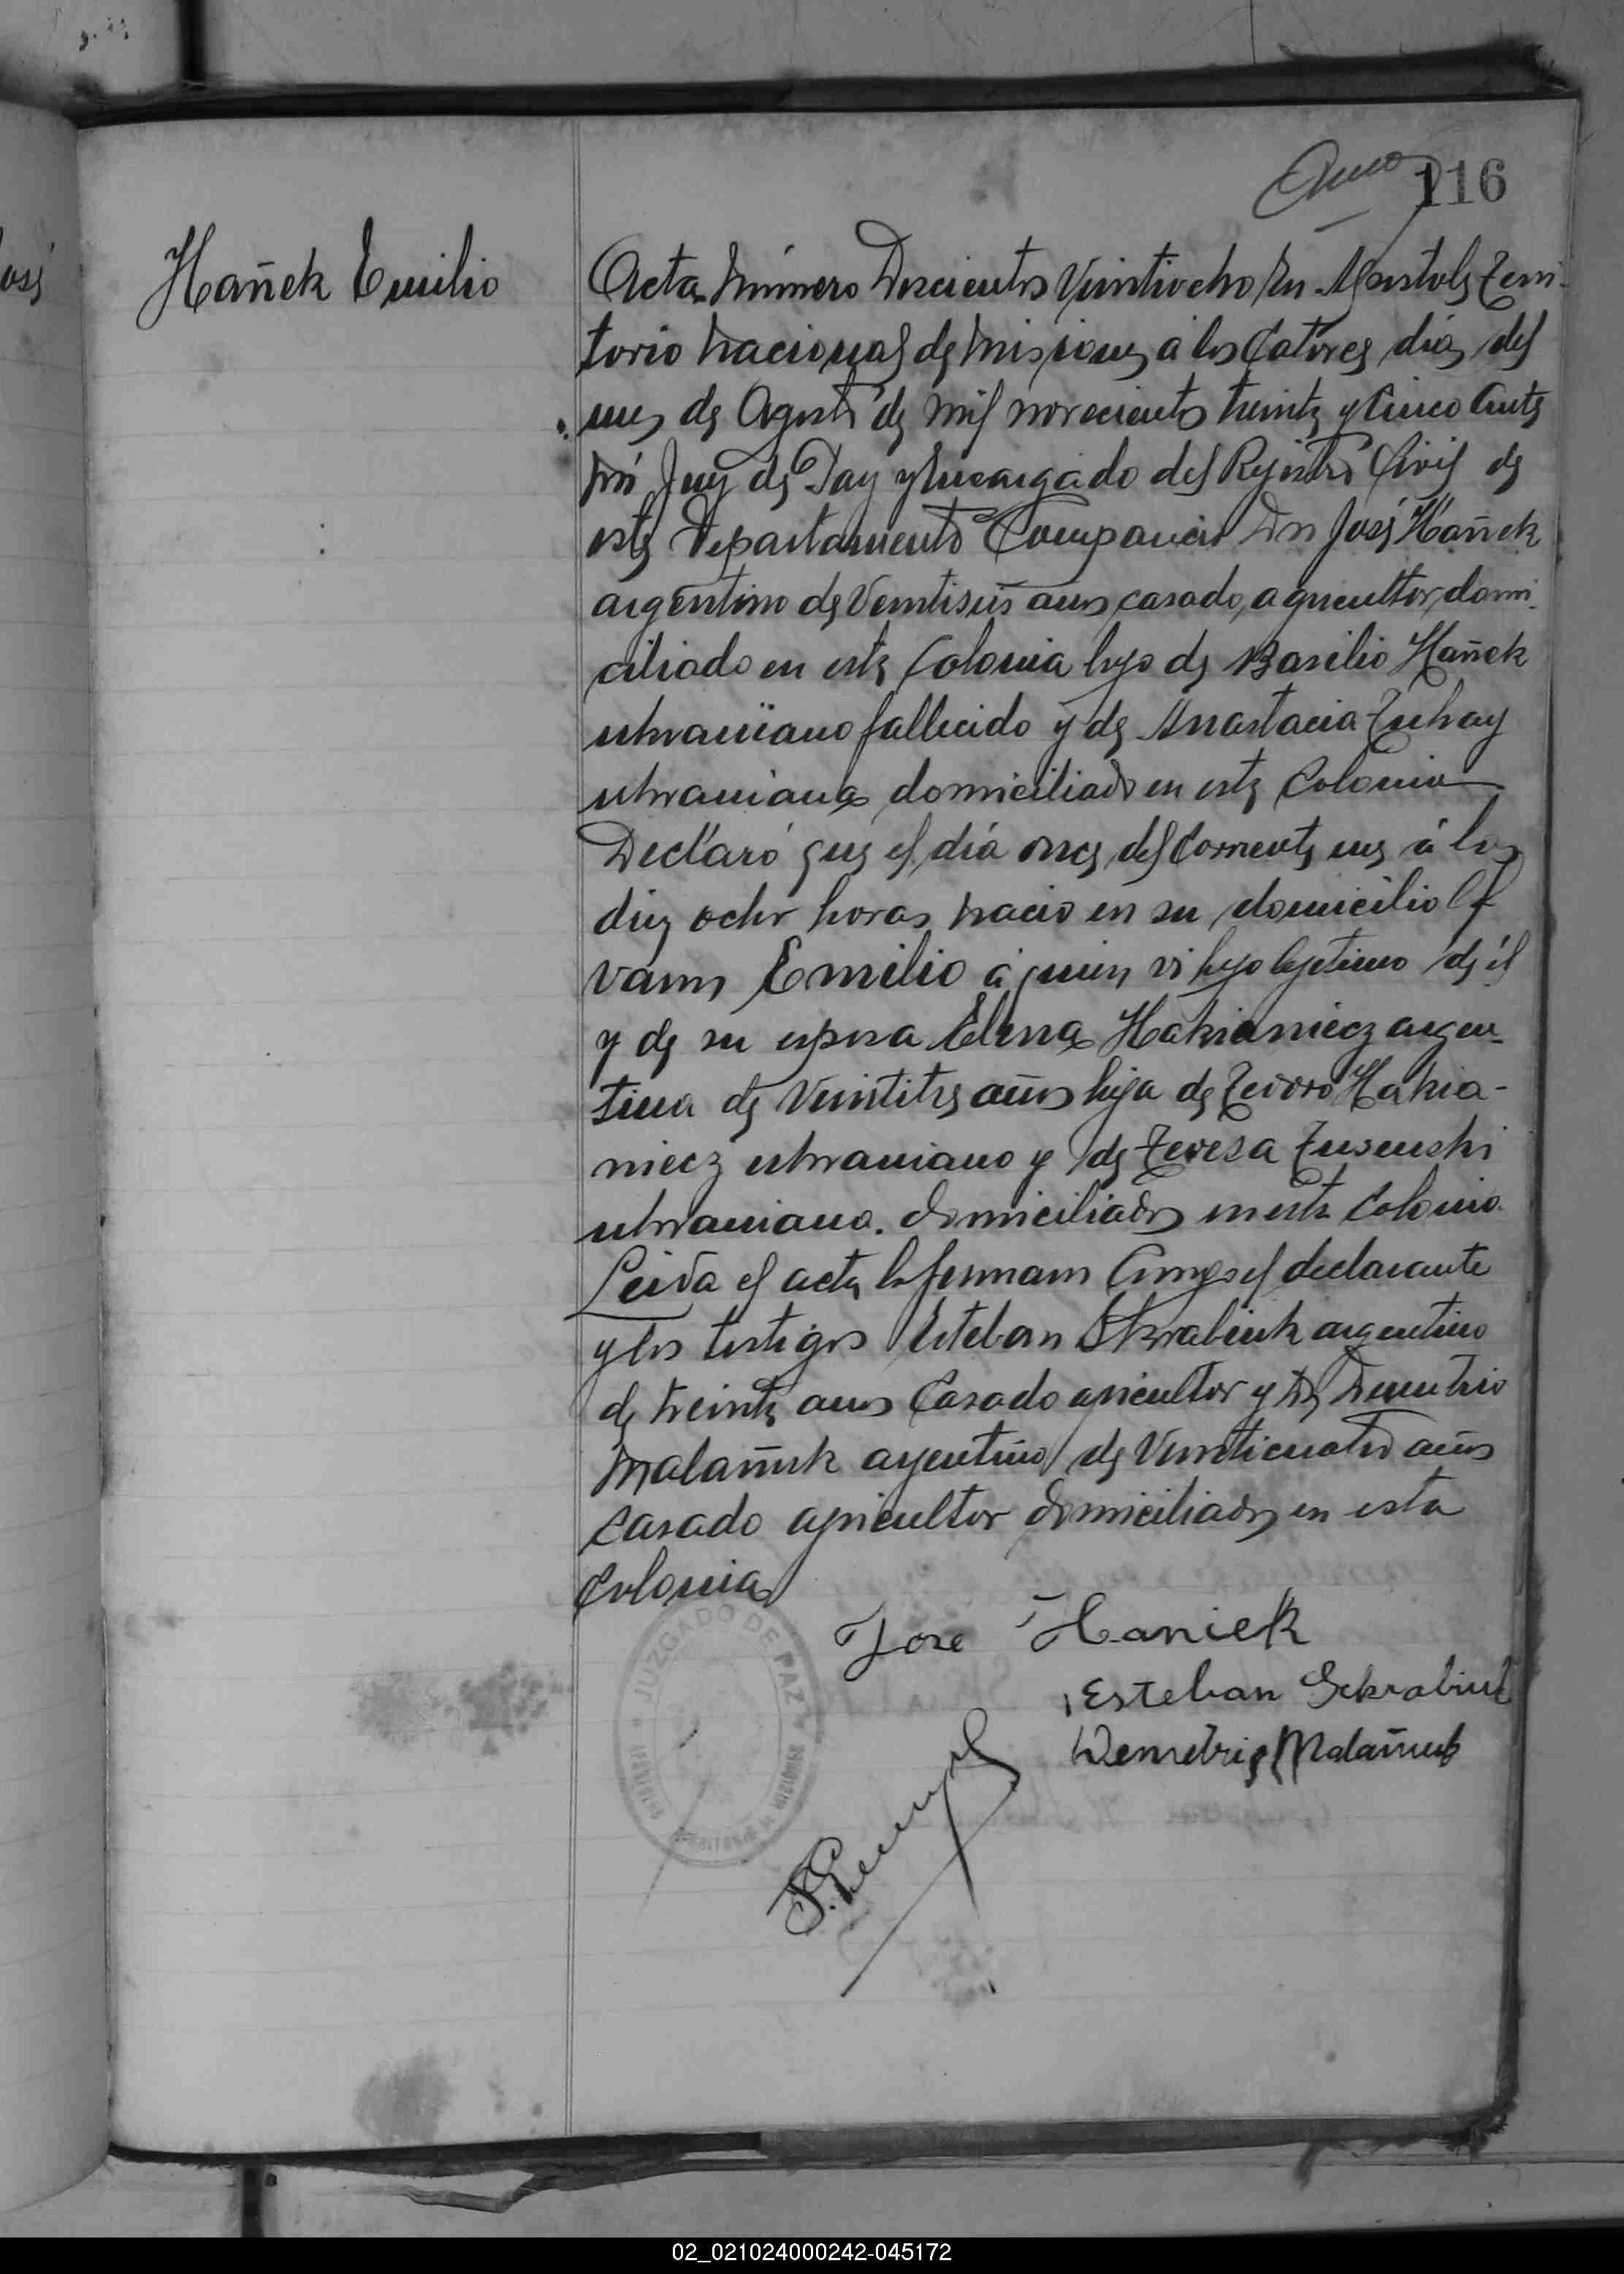 116
Hañek Emilio
Acta Número Doscientos Veintiocho En Apostoles Terri-
torio Nacional de Misiones a los Catorce dias del
mes de Agosto de mil novecientos treinta y Cinco Ante
mi Juez de Paz y Encargado del Registro Civil de
este Departamento Compareció Dn José Hañek
argentino de Veintiseis años, casado, agricultor, domi-
ciliado en esta Colonia hijo de Basilio Hañek
ukraniano fallecido y de Anastacia
ukraniana domiciliado en esta Colonia
Declaró que el día once del corriente mes á las
diez ocho horas nacio en su domicilio el
varon Emilio á quien vi hijo lejitimo de él
y de su esposa Elena Hakianiecz argen-
tina de Veintitres años hija de Teodoro Hakia-
niecz ukraniano y de Teresa
ukraniana. domiciliados en esta Colonia.
Leida el acta la firmaron Conmigo el declarante
y los testigos Esteban Skrabiuk argentino
de treinta años Casado agricultor y Dn Demetrio
Malañuk argentino de Veinticuatro años
casado agricultor domiciliados en esta
Colonia
Jose Haniek
Esteban Sekrabiuk
Demetrio Malañuk
JUZGADO DE PAZ
APOSTOLES
TERRITORIO DE MISIONES
02_021024000242-045172